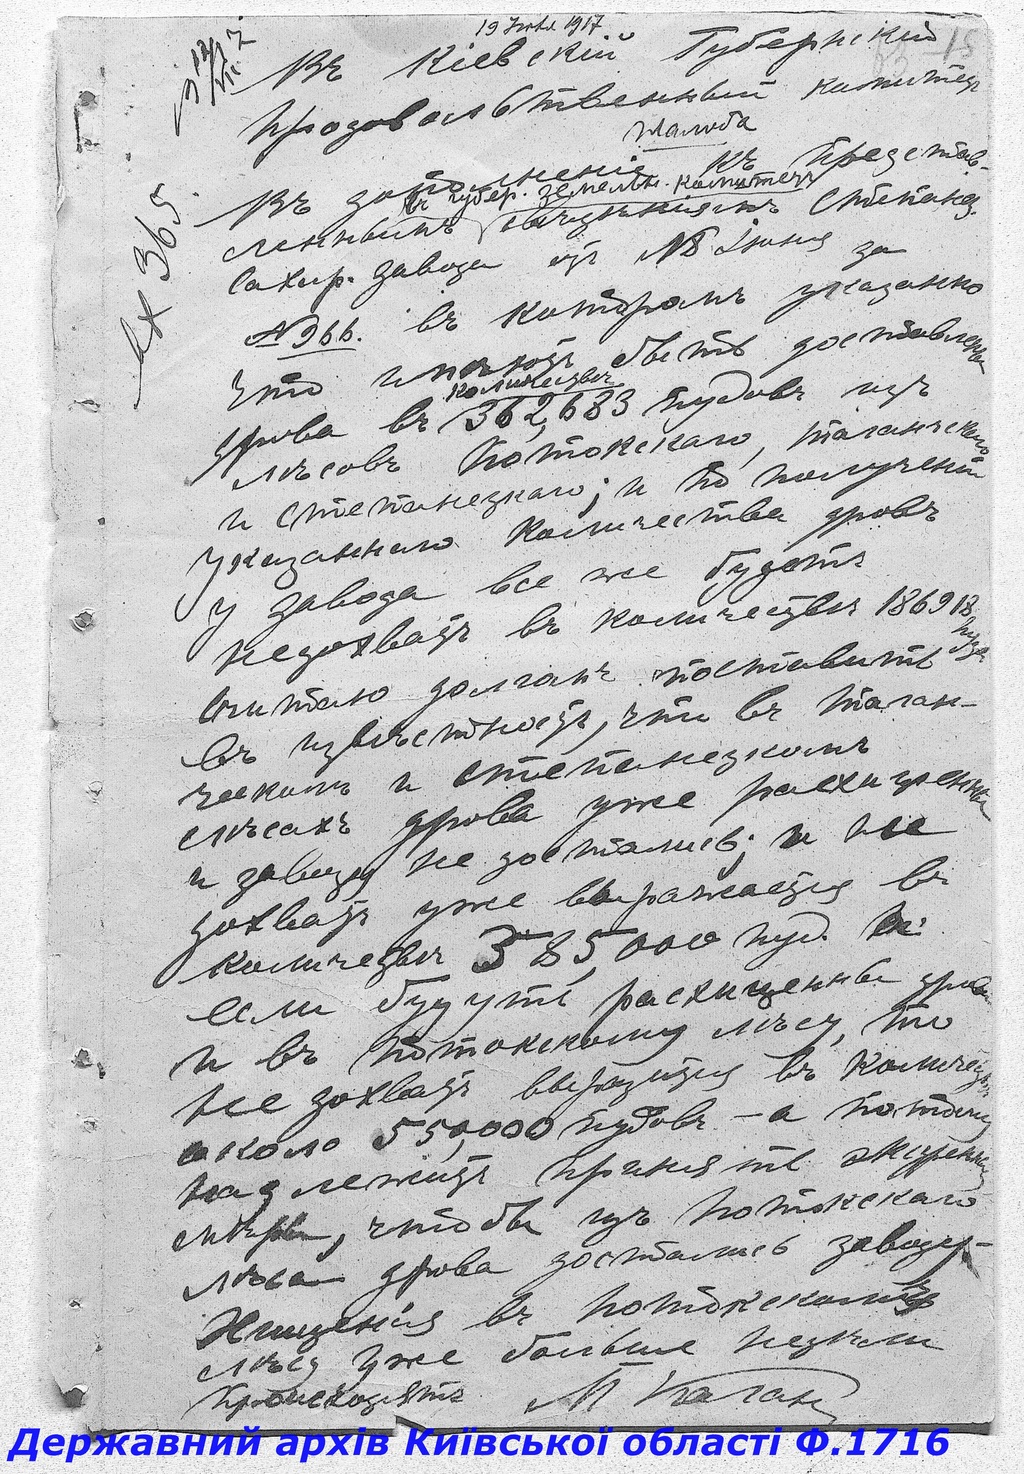 19 Июля 1917.
15
Въ Кіевскій Губернскій
Продовольственный комитетъ
Жалоба
Въ дополненіе къ представ-
въ губер. земельн. комитетъ
леннымъ свѣдѣніямъ Степанец.
сахар. завода отъ Іюня за
№ 966. въ которомъ указанно
Вх 365
что имѣютъ быть доставленны
количествѣ
дрова въ 362,683 пудовъ изъ
лѣсовъ Потокскаго, Таганческаго
и Степанецкаго; и по полученіи
указаннаго количества дровъ
у завода все же будетъ
недохватъ въ количествѣ 186918 пуд.
Считаю долгомъ поставить
въ извѣстность, что въ Таган-
ческомъ и Степанецкомъ
лѣсахъ дрова уже расхищенны
и заводу не достались; и не
дохватъ уже выражается въ
количествѣ 385,000 пуд. и
если будутъ расхищенны дрова
и въ Потокскому лѣсу, то
не дохватъ выразится въ количествѣ
около 550,000 пудовъ – а потому
надлежитъ принять экстренны
мѣры, чтобы изъ Потокскаго
лѣса дрова достались заводу –
Хищенія въ Потокскомъ
лѣсу уже больше недѣли
происходятъ
М Каган
Державний архів Київської області Ф.1716